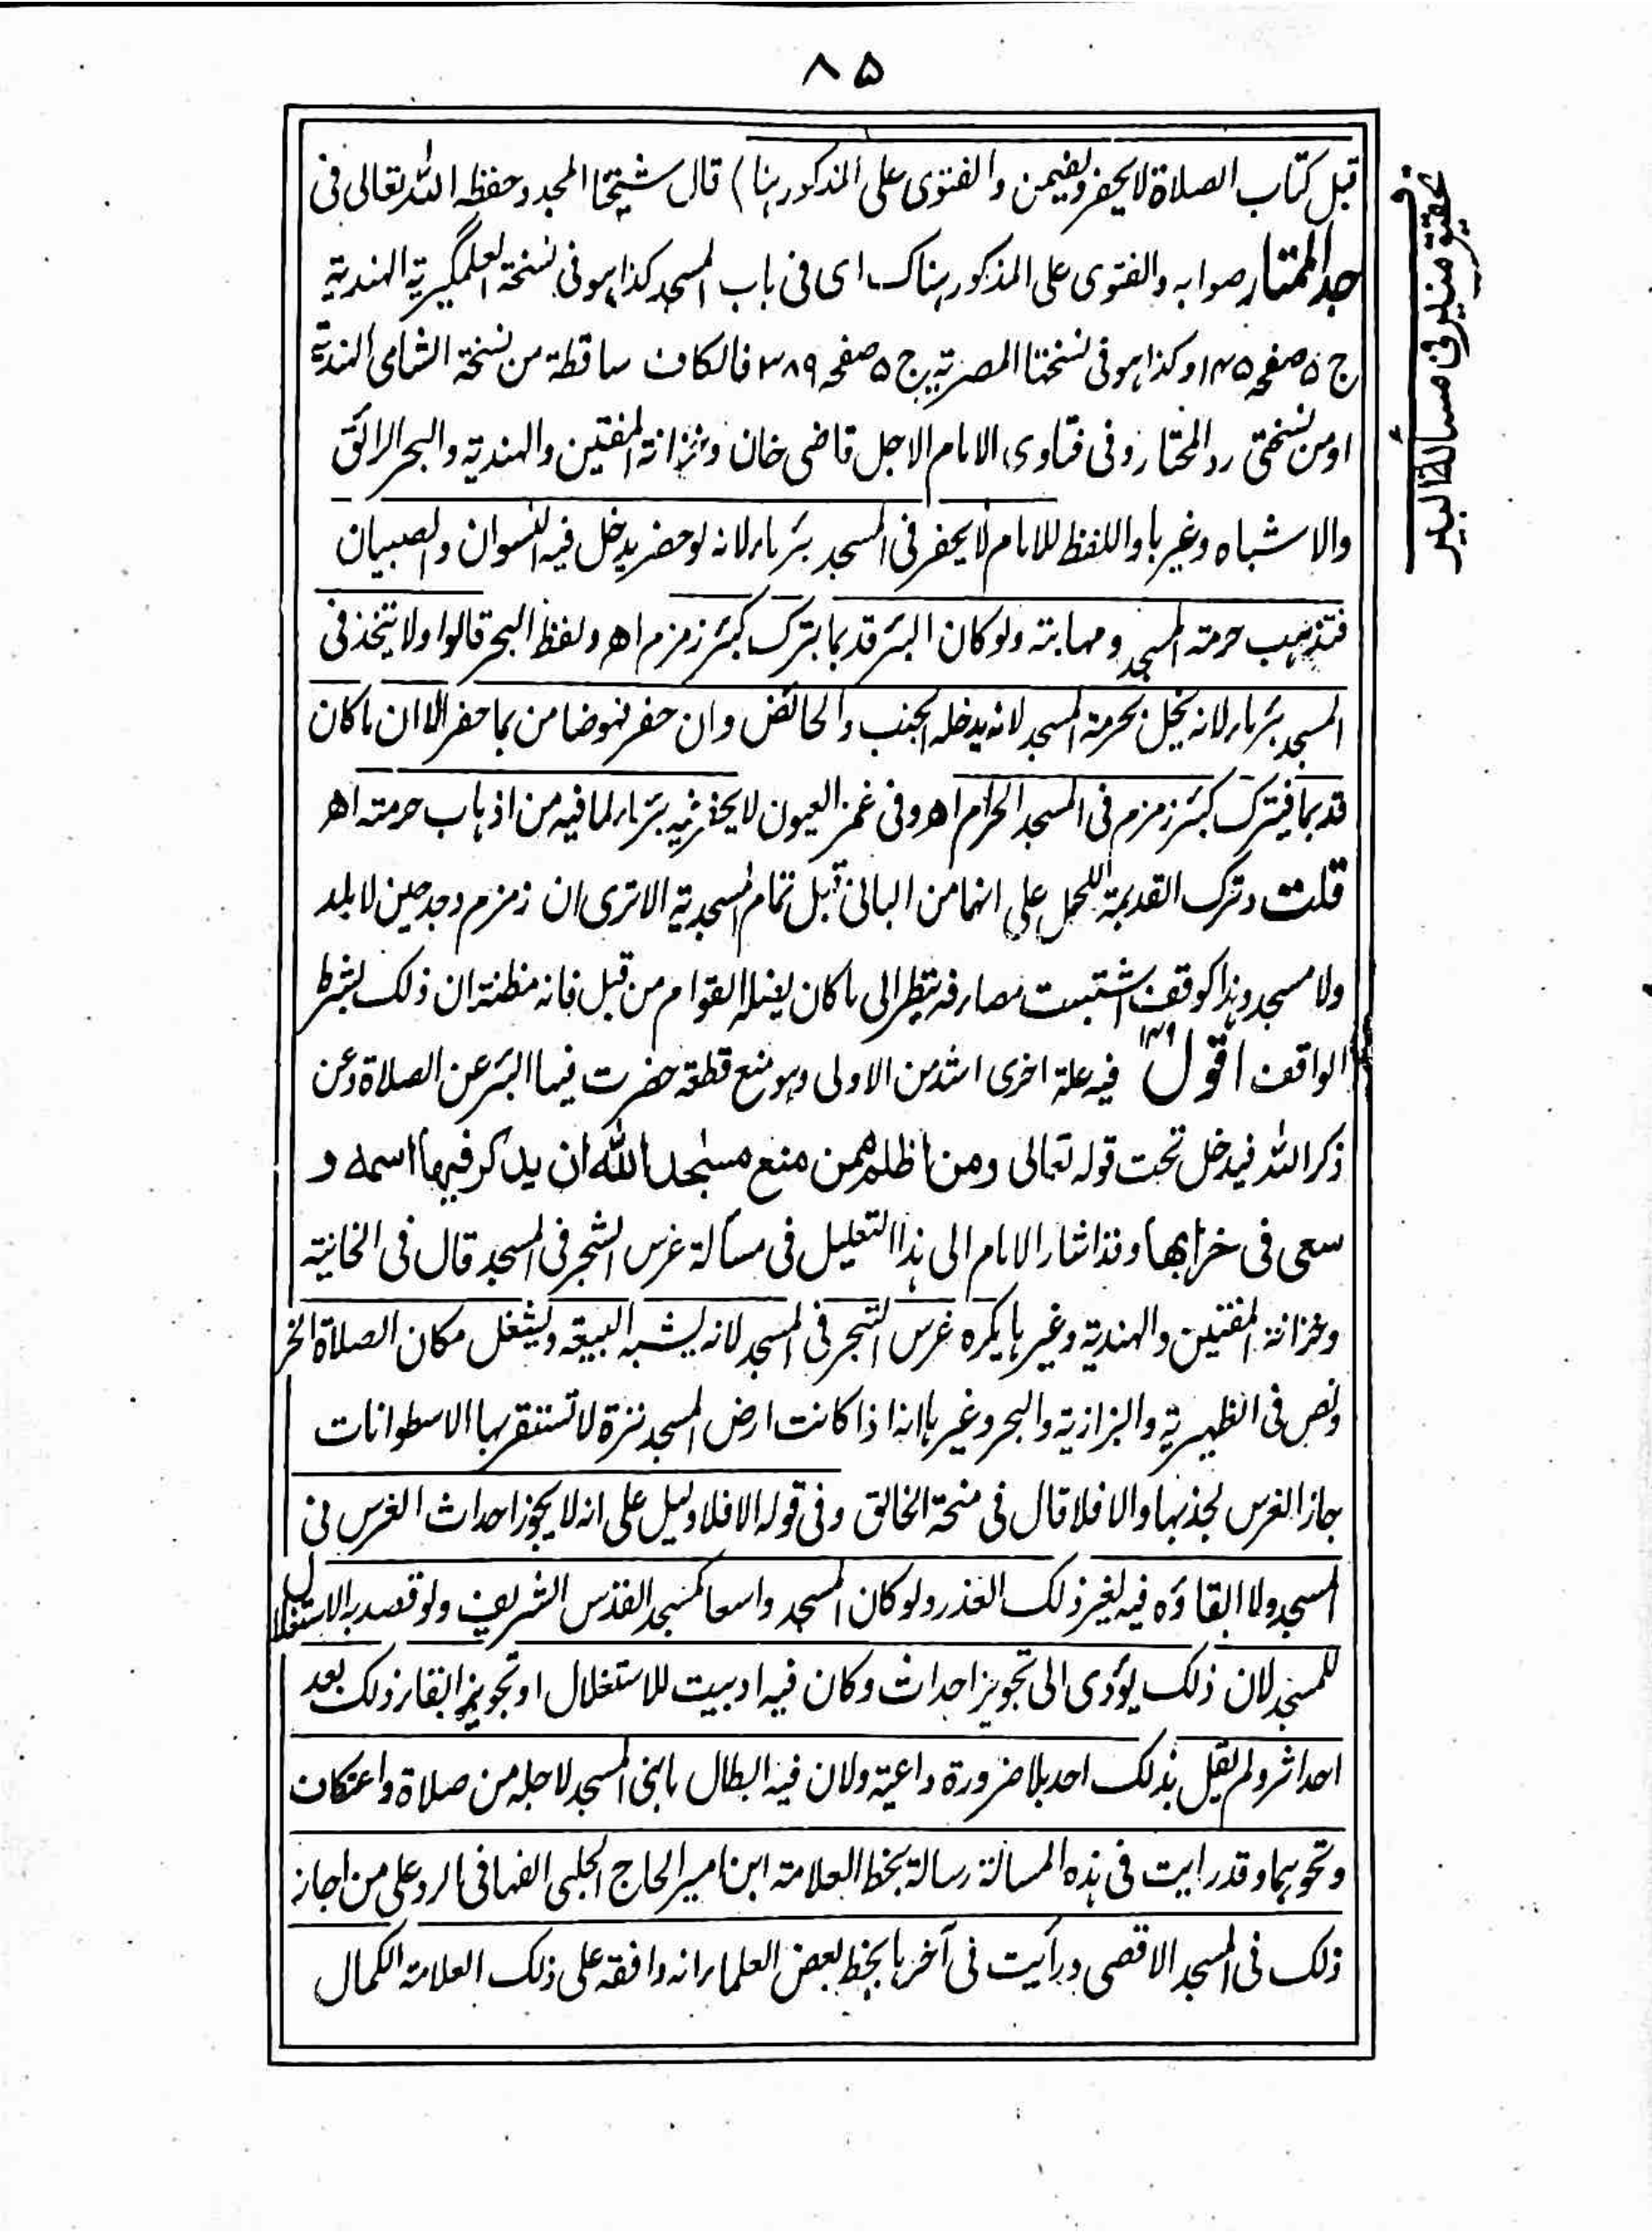 ٨٥
قبل كتاب الصلاة لا يحفر ويضمن والفتوى على المذكور هنا) قال شيخنا المجدد حفظه الله تعالى فى
جد الممتار صوابه والفتوى على المذكور هناك اى فى باب المسجد كذا هو فى نسخة العلمگيرية الهندية
ج ٥ صفحه ١٤٥ وكذا هو فى نسختنا المصرية ج ٥ صفحه ٣٨٩ فالكاف ساقطة من نسخة الشامى الهندية
او من نسختى رد المحتار وفى فتاوى الامام الاجل قاضى خان وخزانة المفتين والهندية والبحر الرائق
والاشباه وغيرها واللفظ للامام لا يحفر فى المسجد بئر ماء لانه لو حفر يدخل فيه النسوان والصبيان
فتذهب حرمة المسجد ومهابته ولو كان البئر قديما يترك كبئر زمزم اھ ولفظ البحر قالوا ولا يتخذ فى
المسجد بئر ماء لانه يخل بحرمة المسجد لانه يدخله الجنب والحائض وان حفر فهو ضامن بما حفر الا ان ما كان
قديما فيترك كبئر زمزم فى المسجد الحرام اھ وفى غمز العيون لا يحفر فيه بئر ماء لما فيه من اذهاب حرمته اھ
قلت وترك القديمة للحمل على انها من البانى قبل تمام المسجدية الا ترى ان زمزم وجد حين لا بلد
ولا مسجد وهذا كوقف اشتبهت مصارفه ينظر الى ما كان يفعله القوام من قبل فانه مظنة ان ذلك بشرط
الواقف اقول ١٤٩ فيه علة اخرى اشد من الاولى وهو منع قطعة حفرت فيها البئر عن الصلاة وعن
ذكر الله فيدخل تحت قوله تعالى ومن اظلم ممن منع مسٰجد الله ان يذكر فيها اسمه و
سعى فى خرابها وقد اشار الامام الى هذا التعليل فى مسألة غرس الشجر فى المسجد قال فى الخانية
وخزانة المفتين والهندية وغيرها يكره غرس الشجر فى المسجد لانه يشبه البيعة ويشغل مكان الصلاة الخ
ونص فى الظهيرية والبزازية والبحر وغيرها انه اذا كانت ارض المسجد نزة لا تستقر بها الاسطوانات
جاز الغرس لجذبها والا فلا قال فى منحة الخالق وفى قوله الا فلا دليل على انه لا يجوز احداث الغرس فى
المسجد ولا ابقاؤه فيه لغير ذلك العذر ولو كان المسجد واسعا كمسجد القدس الشريف ولو قصد به الاستغلال
للمسجد لان ذلك يؤدى الى تجويز احداث دكان فيه او بيت للاستغلال او تجويز ابقاء ذلك بعد
احداثه ولم يقل بذلك احد بلا ضرورة داعية ولان فيه ابطال ما بنى المسجد لاجله من صلاة واعتكاف
ونحوهما وقد رايت فى هذه المسألة رسالة بخط العلامة ابن امير الحاج الحلبى الفها فى الرد على من اجاز
ذلك فى المسجد الاقصى ورأيت فى آخرها بخط بعض العلماء انه وافقه على ذلك العلامة الكمال